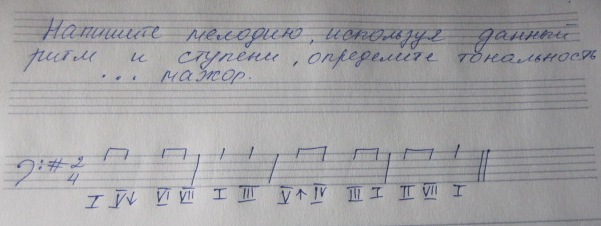 Напишите мелодию, используя данный
ритм и ступени, определите тональность
... мажор.
2
4
I V↓ VI VII I III V↑ IV III I II VII I